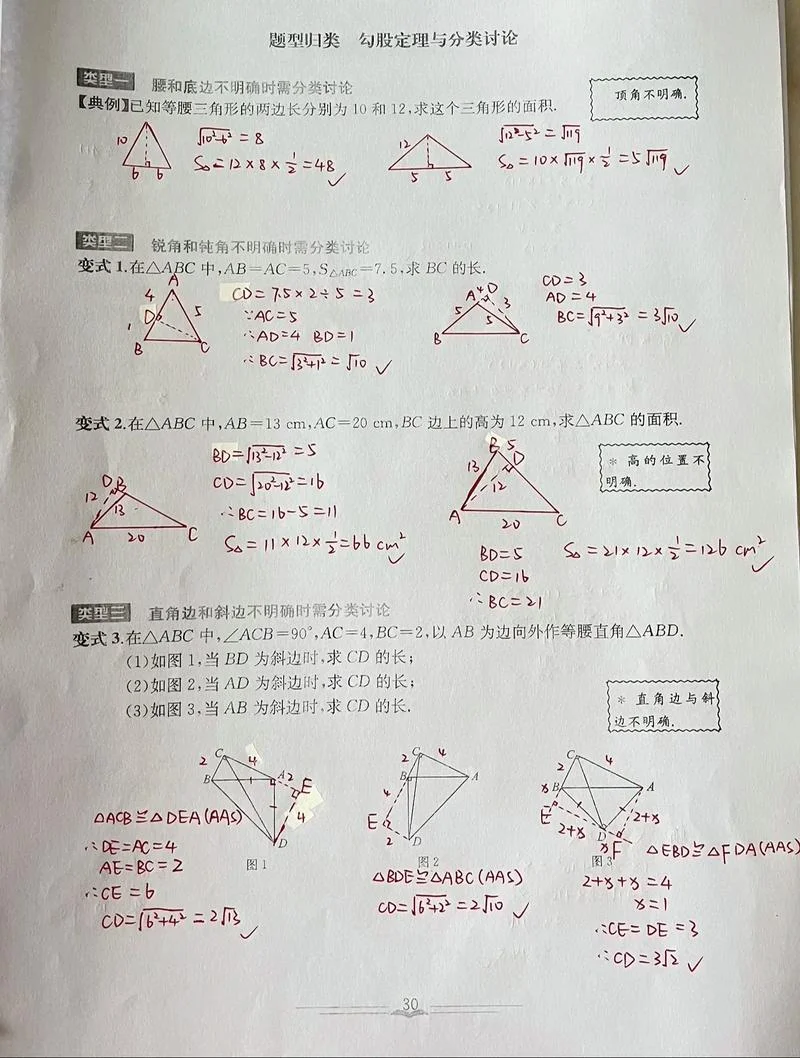 题型归类 勾股定理与分类讨论
类型一 腰和底边不明确时需分类讨论
【典例】已知等腰三角形的两边长分别为10和12,求这个三角形的面积.
顶角不明确.
10
6 6
√10²-6² = 8
S△ = 12×8×1/2 = 48 ✓
12
5 5
√12²-5² = √119
S△ = 10×√119×1/2 = 5√119 ✓
类型二 锐角和钝角不明确时需分类讨论
变式1.在△ABC中,AB=AC=5,S△ABC=7.5,求BC的长.
A
4 5
D
1
B C
CD = 7.5×2÷5 = 3
∵AC=5
∴AD=4 BD=1
∴BC=√3²+1² = √10 ✓
A 4 D
5 5 3
B C
CD=3
AD=4
BC=√9²+3² = 3√10 ✓
变式2.在△ABC中,AB=13 cm,AC=20 cm,BC边上的高为12 cm,求△ABC的面积.
* 高的位置不
明确.
D B
12 13
A 20 C
BD=√13²-12² = 5
CD=√20²-12² = 16
∴BC=16-5=11
S△ = 11×12×1/2=66 cm² ✓
B 5 D
13 12
A 20 C
BD=5
CD=16
∴BC=21
S△ = 21×12×1/2=126 cm² ✓
类型三 直角边和斜边不明确时需分类讨论
变式3.在△ABC中,∠ACB=90°,AC=4,BC=2,以AB为边向外作等腰直角△ABD.
(1)如图1,当BD为斜边时,求CD的长;
(2)如图2,当AD为斜边时,求CD的长;
(3)如图3,当AB为斜边时,求CD的长.
* 直角边与斜
边不明确.
C
2 4
B A 2 E
4
D
图1
△ACB≌△DEA(AAS)
∴DE=AC=4
AE=BC=2
∴CE=6
CD=√6²+4² = 2√13 ✓
C
2 4
B A
4
E
2 D
图2
△BDE≌△ABC(AAS)
CD=√6²+2² = 2√10 ✓
C
2 4
x B A
E 2+x D 2+x
x F
图3
△EBD≌△FDA(AAS)
2+x+x=4
x=1
∴CE=DE=3
∴CD=3√2 ✓
30